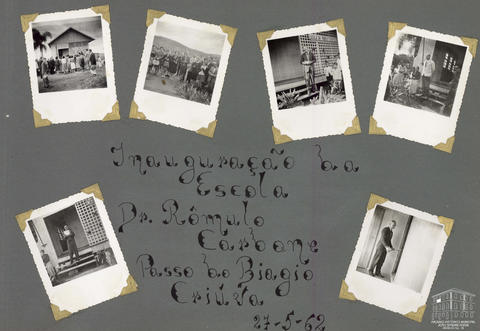 Inauguração da
Escola
Dr. Rômulo
Carbone
Passo do Biagio
Criúva
27-5-62